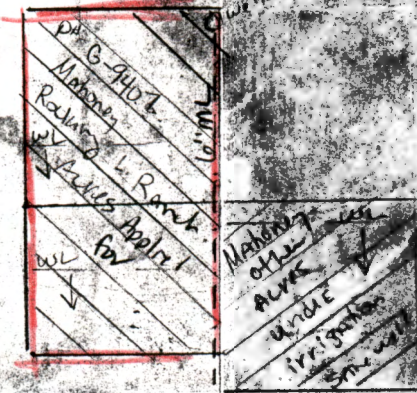 we
G-9407
Mahoney
Rocking L. Ranch
Acres Applied
for
WL
WL
6" ML
Mahoney
other
Acres
under
irrigation
same well
WL